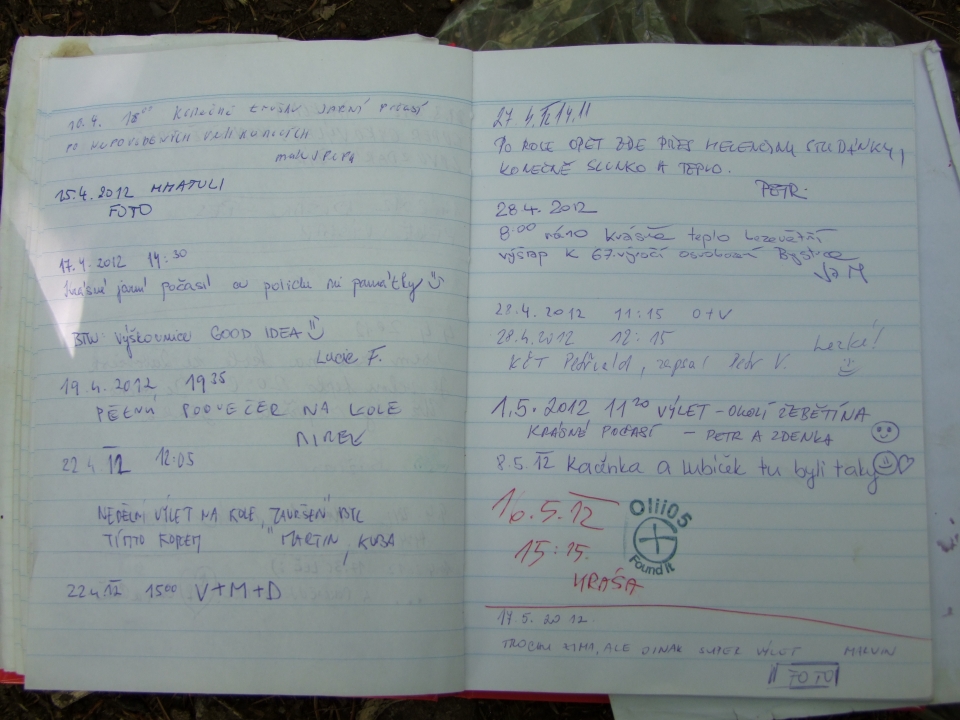 10.4. 18⁰⁰ KONEČNĚ TROŠKU JARNÍ POČASÍ
PO NEPOVEDENÝCH VELIKONOCÍCH
15.4. 2012 MHATULI
FOTO
17.4. 2012 14:30
Krásné jarní počasí au policku ni památky
BTW: Výškovnice GOOD IDEA
Lucie F.
19.4. 2012 19³⁵
PĚKNÝ PODVEČER NA KOLE
MIREK
22 4. 12 12:05
NEDĚLNÍ VÝLET NA KOLE, ZAVRŠEN BYL
TÍMTO KOPCEM MARTIN, KUBA
22 4 12 15⁰⁰ V+M+D
27. 4. 12 14.11
PO ROCE OPĚT ZDE PŘES HELENČINU STUDÁNKU,
KONEČNĚ SLUNKO A TEPLO.
PETR.
28 4. 2012
8.00 ráno krásně teplo bezvětří
výstup k 67. výročí osvobození Bystrce
28.4. 2012 11:15 O+V
28.4. 2012 12:15
KČT Petřvald, zapsal Petr V.
Hezké!
1.5. 2012 11²⁰ VÝLET - OKOLÍ ŽEBĚTÍNA
KRÁSNÉ POČASÍ - PETR A ZDENKA
8.5. 12 Kačénka a lubíček tu byli taky
16.5.12
15:15.
KRÁSA
Olii05
Found it
17.5. 2012.
TROCHU ZIMA, ALE JINAK SUPER VÝLET MARVIN
FOTO